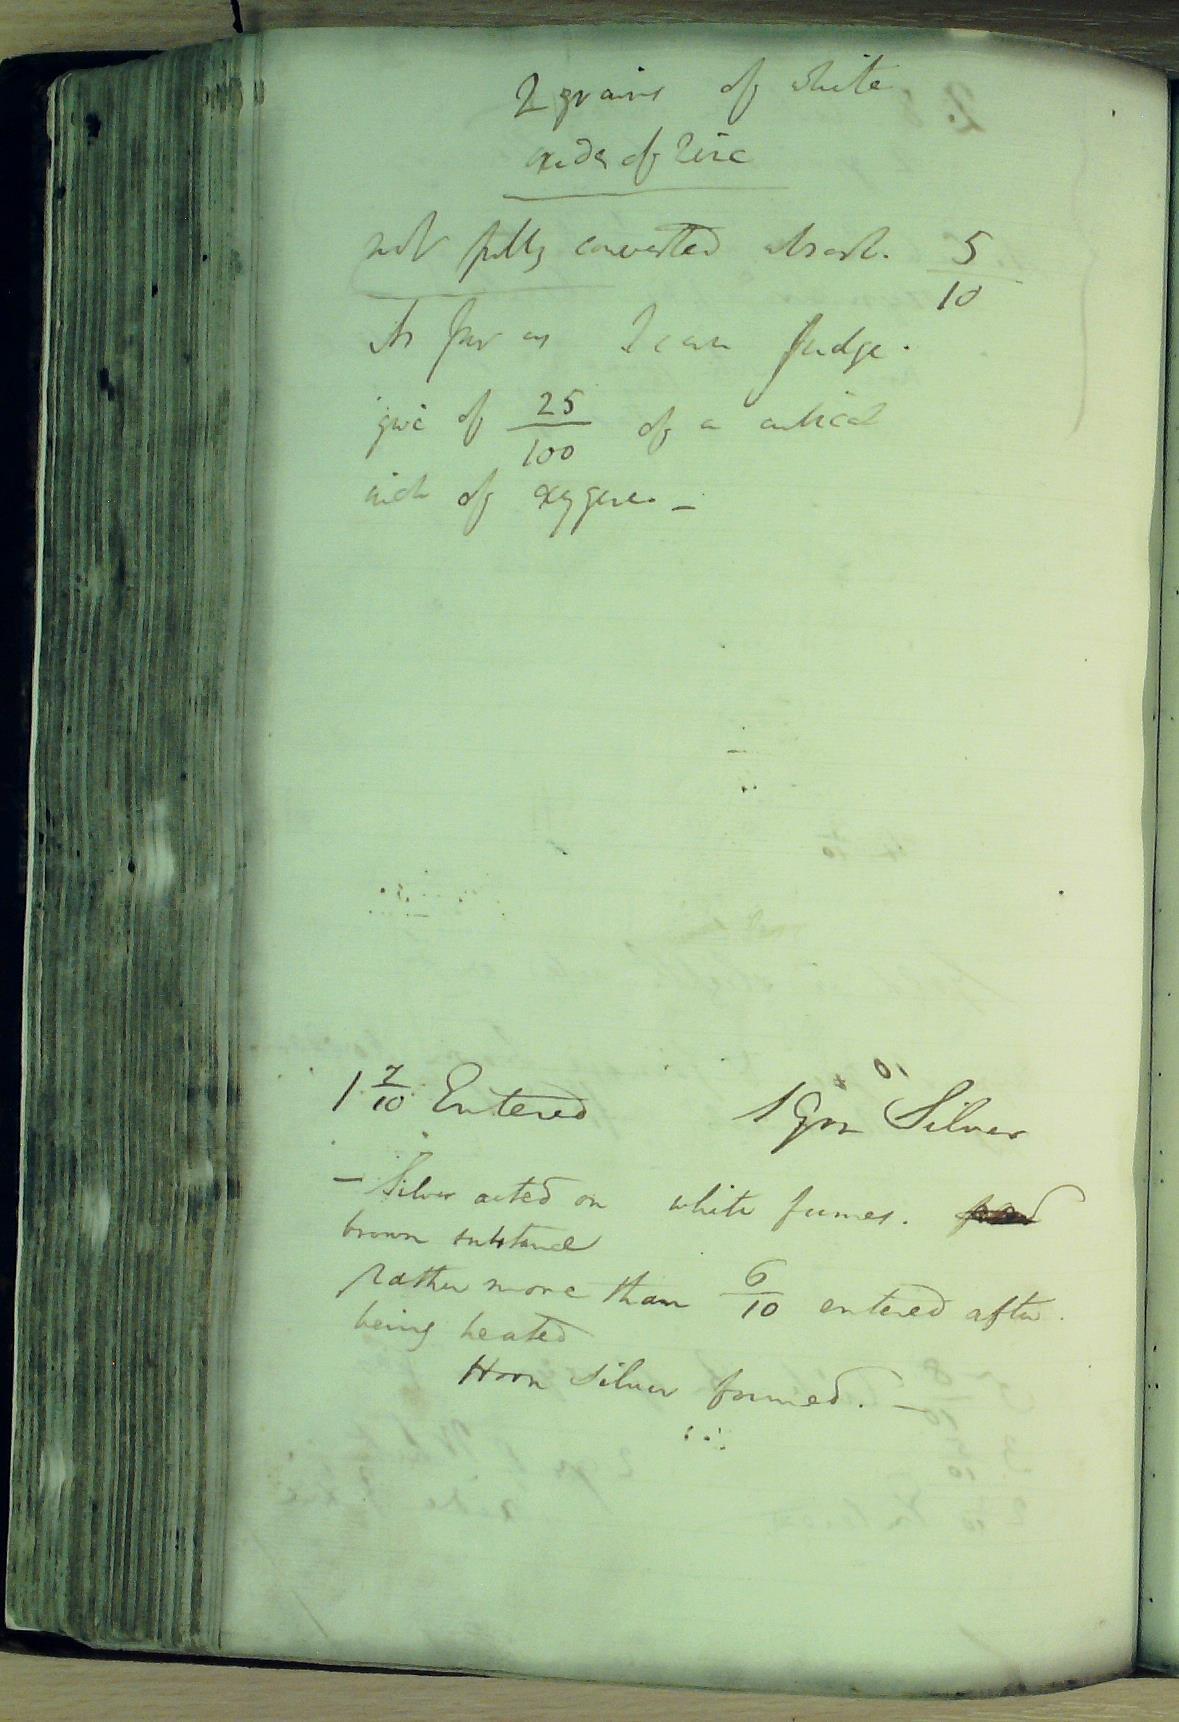 2 grains of white
oxide of Zinc
not fully converted absorb. 5/10
As far as I can judge.
give of 25/100 of a cubical
inch of oxygene. –
1 7/10 Entered 1 Grn Silver
– Silver acted on white fumes.
brown substance
Rather more than 6/10 entered after
being heated
Horn silver formed. –